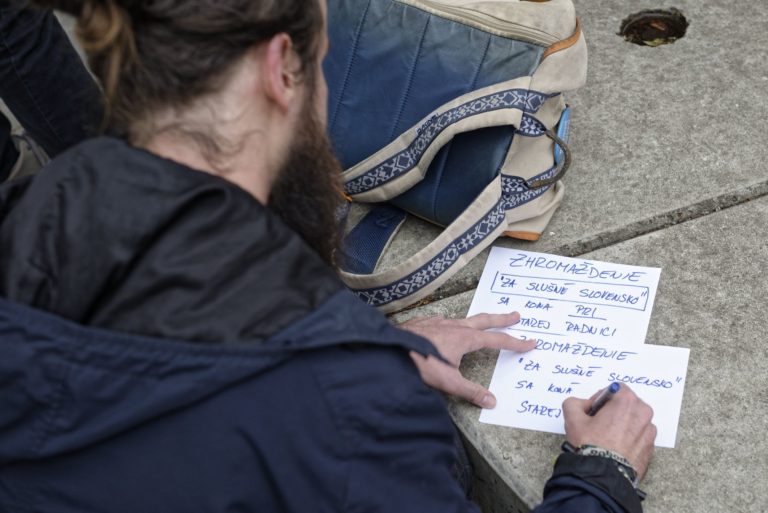 ZHROMAŽDENIE
"ZA SLUŠNÉ SLOVENSKO"
SA KONÁ PRI
STAREJ RADNICI
ZHROMAŽDENIE
"ZA SLUŠNÉ SLOVENSKO"
SA KONÁ
STAREJ